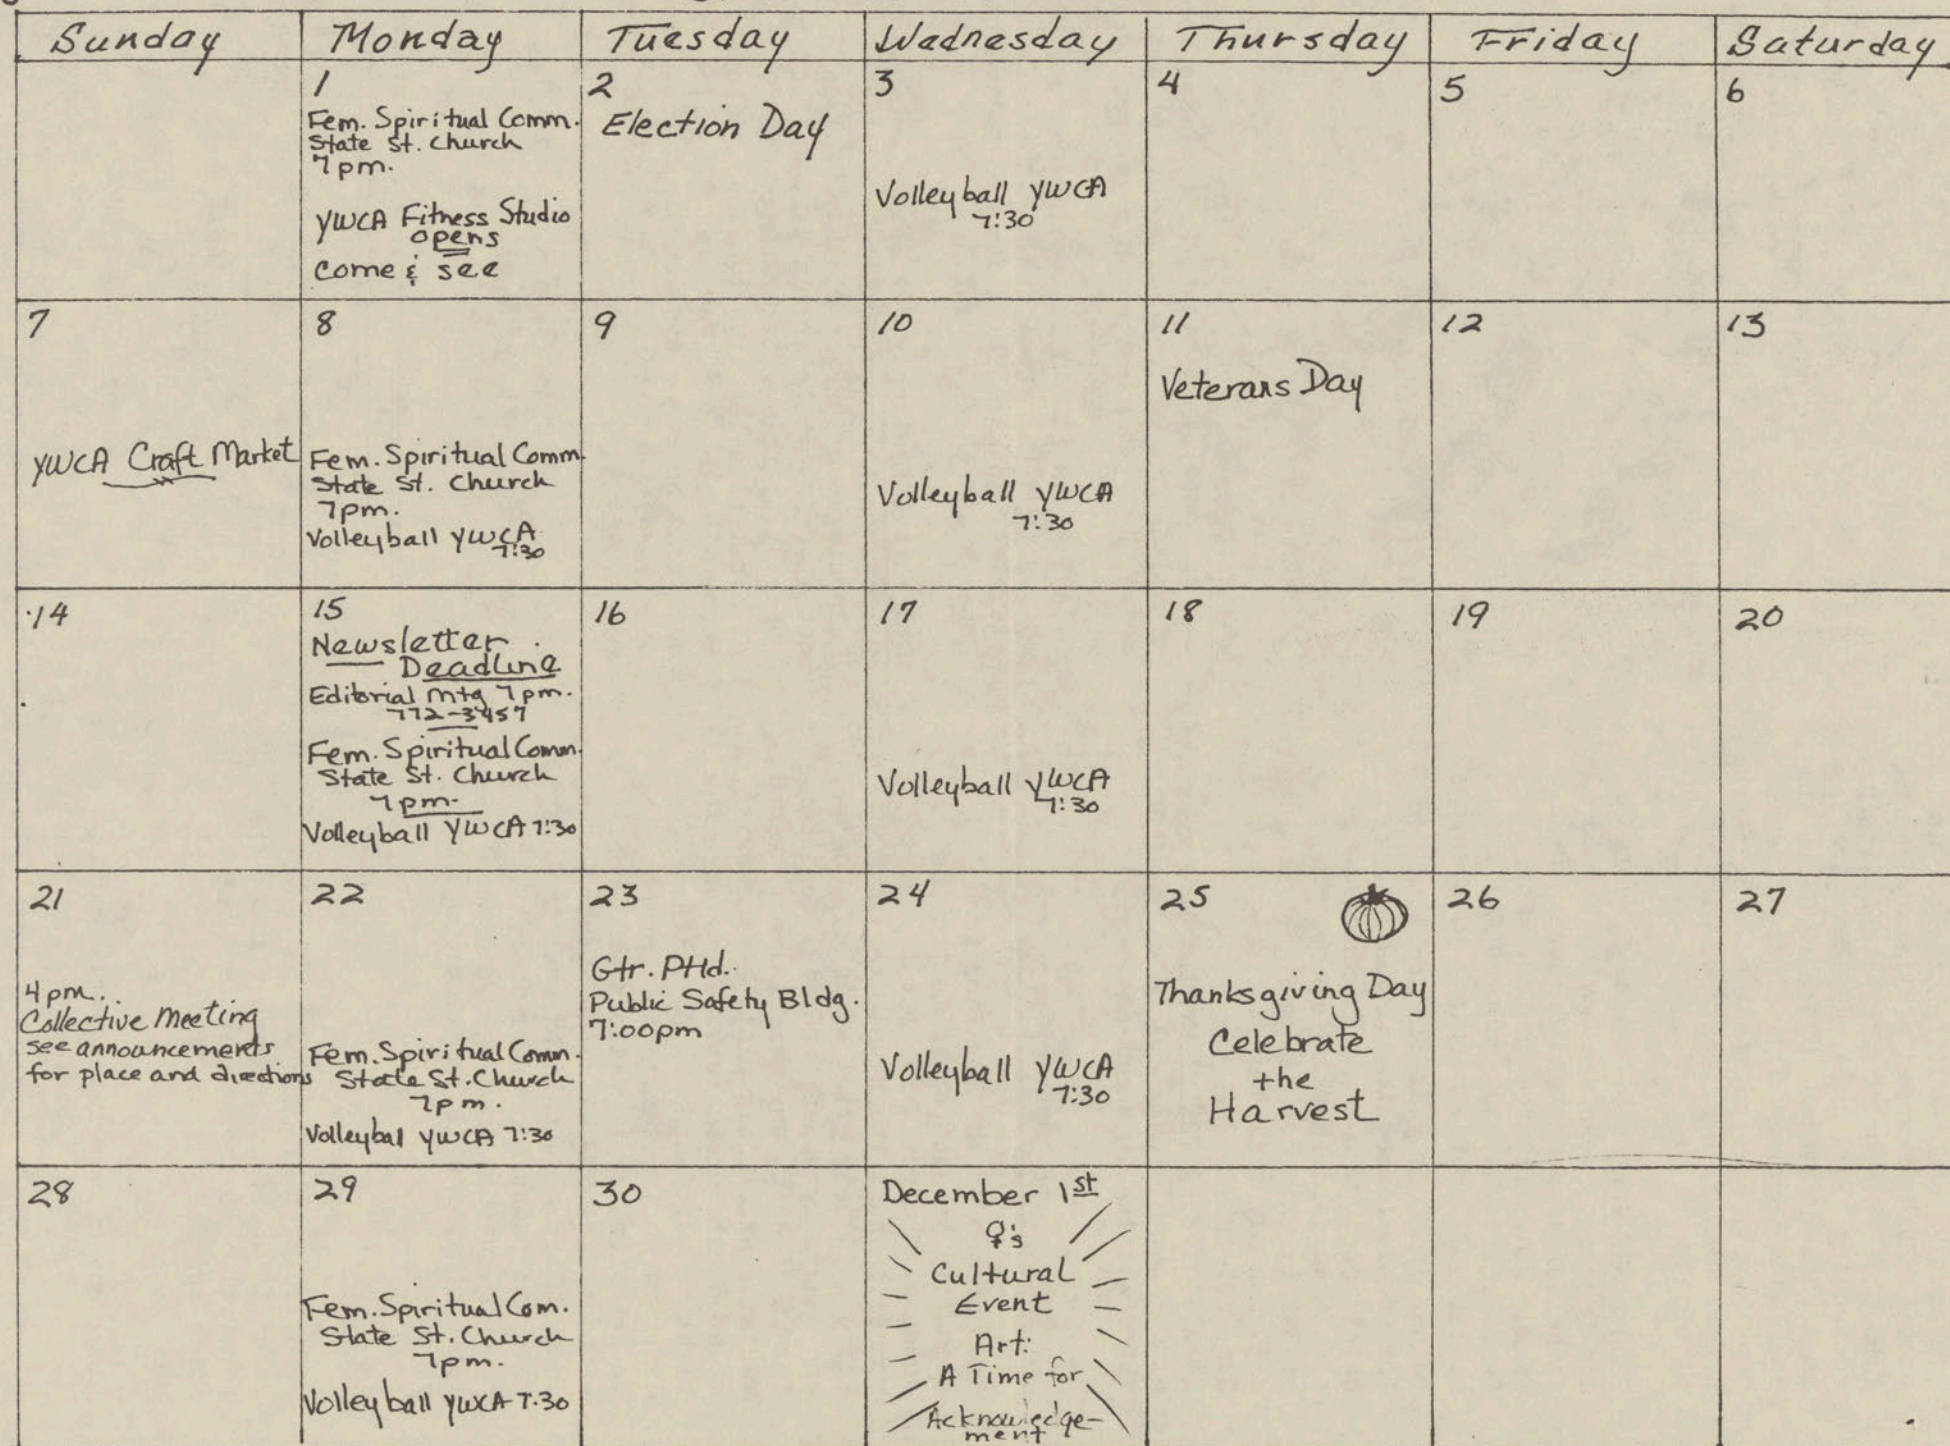 Sunday Monday Tuesday Wednesday Thursday Friday Saturday
1
Fem. Spiritual Comm.
State St. Church
7pm.
YWCA Fitness Studio
opens
Come & see
2
Election Day
3
Volleyball YWCA
7:30
4
5
6
7
YWCA Craft Market
8
Fem. Spiritual Comm.
State St. Church
7pm.
Volleyball YWCA
7:30
9
10
Volleyball YWCA
7:30
11
Veterans Day
12
13
14
15
Newsletter
Deadline
Editorial Mtg 7pm.
772-3457
Fem. Spiritual Comm.
State St. Church
7pm.
Volleyball YWCA 7:30
16
17
Volleyball YWCA
7:30
18
19
20
21
4pm.
Collective Meeting
see announcements
for place and directions
22
Fem. Spiritual Comm.
State St. Church
7pm.
Volleybal YWCA 7:30
23
Gtr. Ptld.
Public Safety Bldg.
7:00pm
24
Volleyball YWCA
7:30
25
Thanksgiving Day
Celebrate
the
Harvest
26
27
28
29
Fem. Spiritual Com.
State St. Church
7pm.
Volleyball YWCA 7:30
30
December 1st
♀'s
Cultural
Event
Art:
A Time for
Acknowledge-
ment